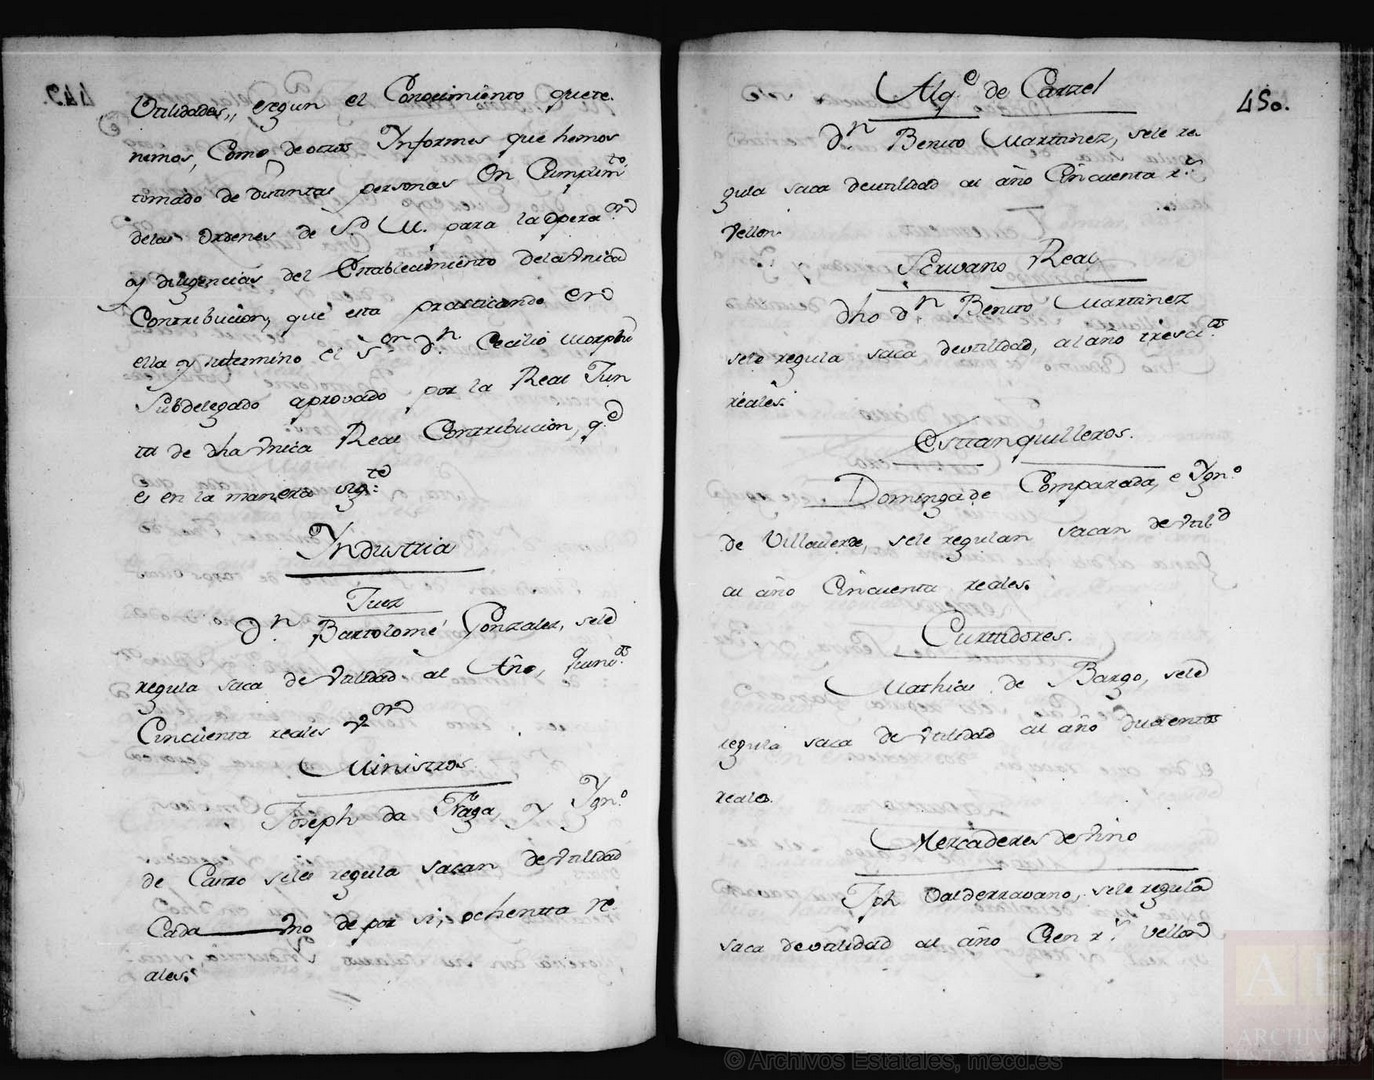 Utilidades, segun el Conocimiento que te-
nemos, Como de otros Ynformes que hemos
tomado de distintas personas en Cumplim.to
delas ordenes de S. M. para la opera.on
y diligencias del establecimiento dela Vnica
Contribucion, que esta practicando en
ella y su termino el S.or D.n Cecilio Morphi
Subdelegado aprovado por la Real Jun
ta de dha Vnica Real Contribucion, q.e
es en la manera sig.te
Yndustria
Juez
D.n Bartolomé Gonzalez, sele
regula saca de Vtilidad al Año, quin.os
Cincuenta reales v.on
Ministros
Joseph da Fraga, y Ygn.o
de Castro seles regula sacan de Vtilidad
Cada Vno de por si, ochentta re
ales.
Alg.e de Carzel
450.
D.n Benito Martinez, sele re-
gula saca de utilidad al año Cincuenta r.s
Vellon.
Scrivano Real
dho d.n Benito Martinez
sele regula saca de utilidad, al año tresci.os
reales.
Estanquilleros.
Dominga de Comparada, e Ygn.o
de Villaverde, sele regulan sacan de Vtil.d
al año Cincuenta reales.
Curttidores.
Mathias de Bargo, sele
regula saca de Vtilidad al año ducientos
reales.
Mercaderes de Vino
Jph Valderravano, sele regula
saca de utilidad al año Cien r.s Vellon
© Archivos Estatales, mecd.es
AE
ARCHIVOS
ESTATALES